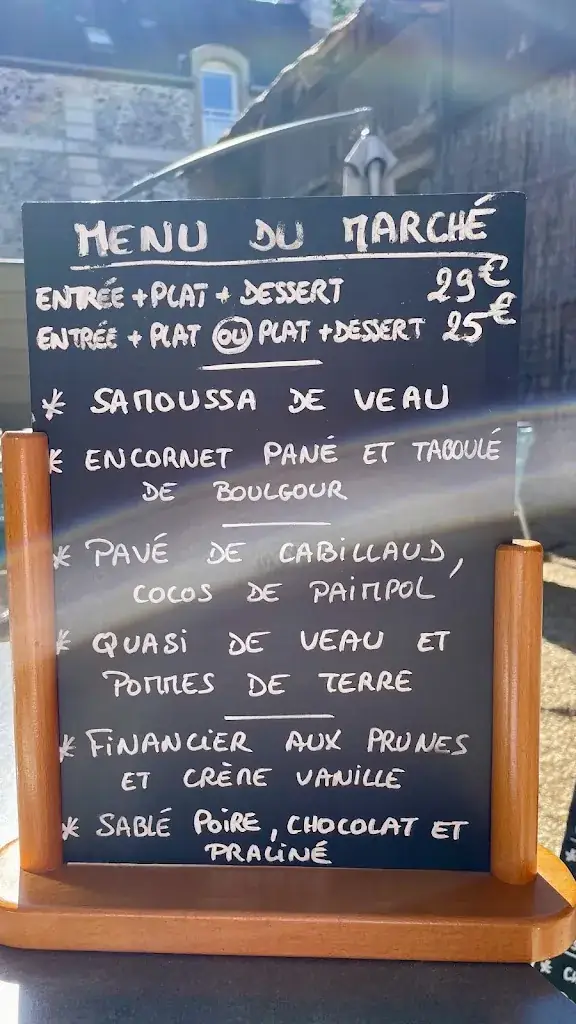 MENU DU MARCHÉ
ENTRÉE + PLAT + DESSERT 29€
ENTRÉE + PLAT OU PLAT + DESSERT 25€
* SAMOUSSA DE VEAU
* ENCORNET PANÉ ET TABOULÉ
DE BOULGOUR
* PAVÉ DE CABILLAUD,
COCOS DE PAIMPOL
* QUASI DE VEAU ET
POMMES DE TERRE
* FINANCIER AUX PRUNES
ET CRÈME VANILLE
* SABLÉ POIRE, CHOCOLAT ET
PRALINÉ